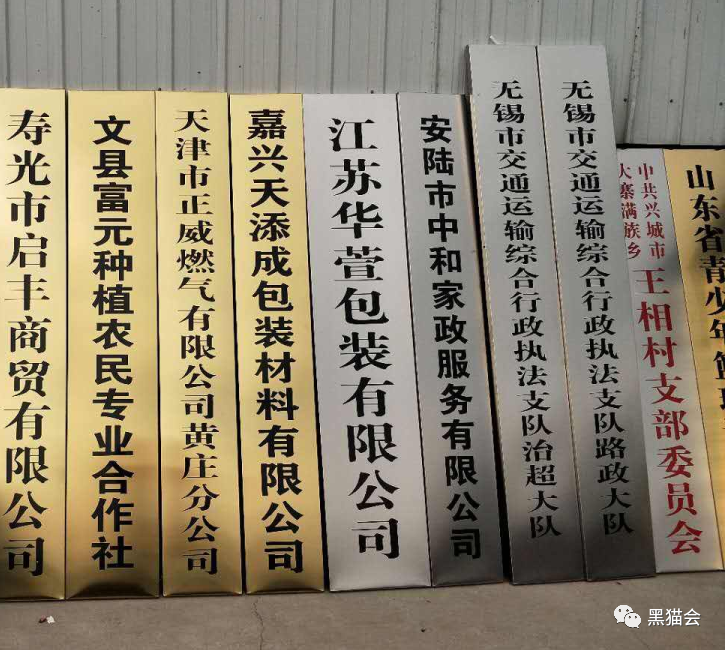 寿光市启丰商贸有限公司
文县富元种植农民专业合作社
天津市正威燃气有限公司黄庄分公司
嘉兴天添成包装材料有限公司
江苏华萱包装有限公司
安陆市中和家政服务有限公司
无锡市交通运输综合行政执法支队治超大队
无锡市交通运输综合行政执法支队路政大队
中共兴城市
大寨满族乡
王相村支部委员会
山东省青少年
黑猫会